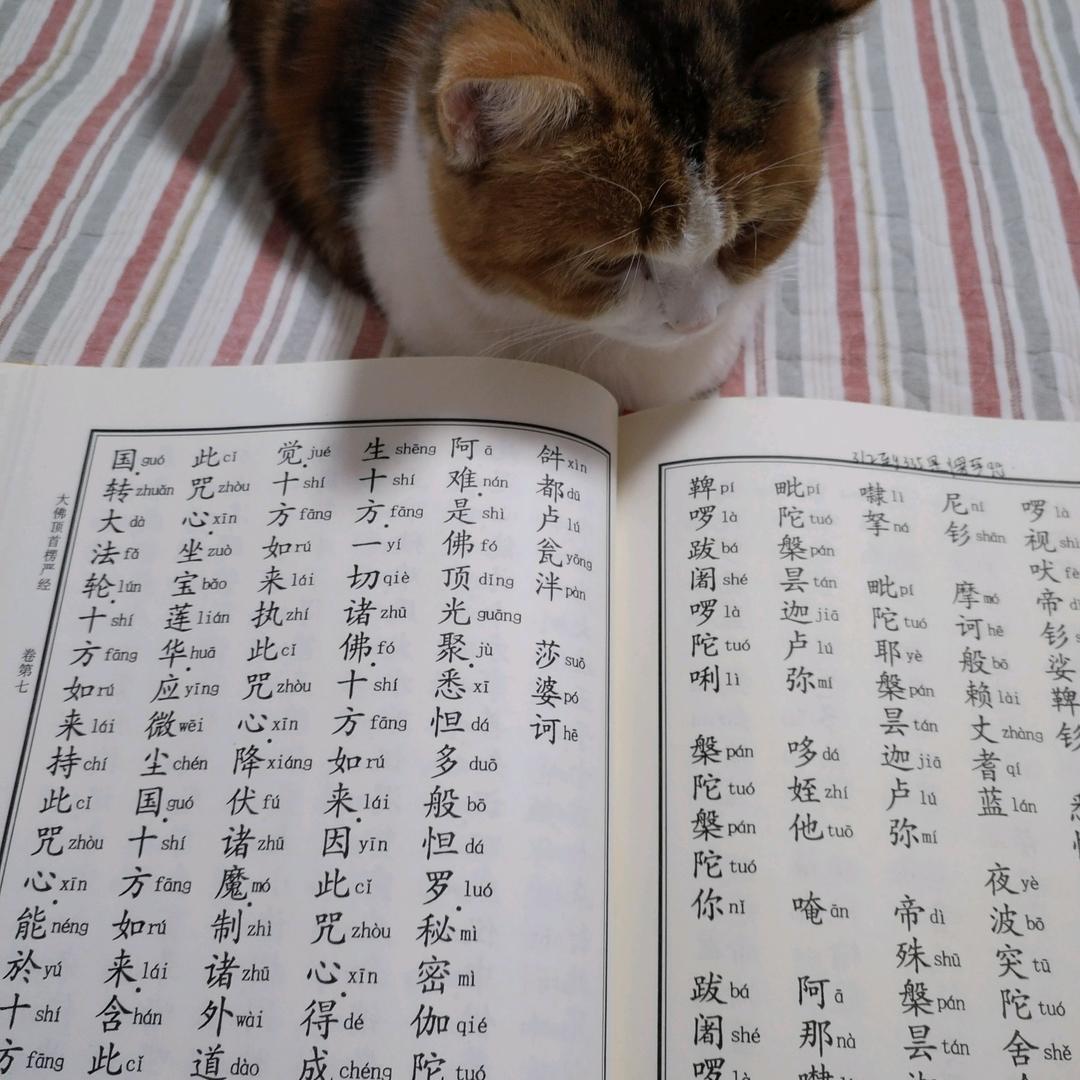 啰là 视 吠 帝 钐 娑 鞞 钐
尼ní 钐shān 摩mó 诃hē 般bō 赖lài 丈zhàng 耆qí 蓝lán 夜yè 波bō 突tū 陀tuó 舍shě
lì 拏ná 毗pí 陀tuó 耶yè 槃pán 昙tán 迦jiā 卢lú 弥mí 帝dì 殊shū 槃pán 昙tán
毗pí 陀tuó 槃pán 昙tán 迦jiā 卢lú 弥mí 哆dá 姪zhí 他tuō 唵ān 阿ā 那nà
鞞pí 啰là 跋bá 阇shé 啰là 陀tuó 唎lì 槃pán 陀tuó 槃pán 陀tuó 你nǐ 跋bá 阇shé 啰là
xìn 都dū 卢lú 瓮yōng 泮pàn 莎suō 婆pó 诃hē
阿ā 难nán 是shì 佛fó 顶dǐng 光guāng 聚jù 悉xī 怛dá 多duō 般bō 怛dá 罗luó 秘mì 密mì 伽qié 陀tuó
生shēng 十shí 方fāng 一yí 切qiè 诸zhū 佛fó 十shí 方fāng 如rú 来lái 因yīn 此cǐ 咒zhòu 心xīn 得dé 成chéng
觉jué 十shí 方fāng 如rú 来lái 执zhí 此cǐ 咒zhòu 心xīn 降xiáng 伏fú 诸zhū 魔mó 制zhì 诸zhū 外wài 道dào
此cǐ 咒zhòu 心xīn 坐zuò 宝bǎo 莲lián 华huā 应yīng 微wēi 尘chén 国guó 十shí 方fāng 如rú 来lái 含hán 此cǐ
国guó 转zhuǎn 大dà 法fǎ 轮lún 十shí 方fāng 如rú 来lái 持chí 此cǐ 咒zhòu 心xīn 能néng 於yú 十shí 方fāng
大佛顶首楞严经 卷第七